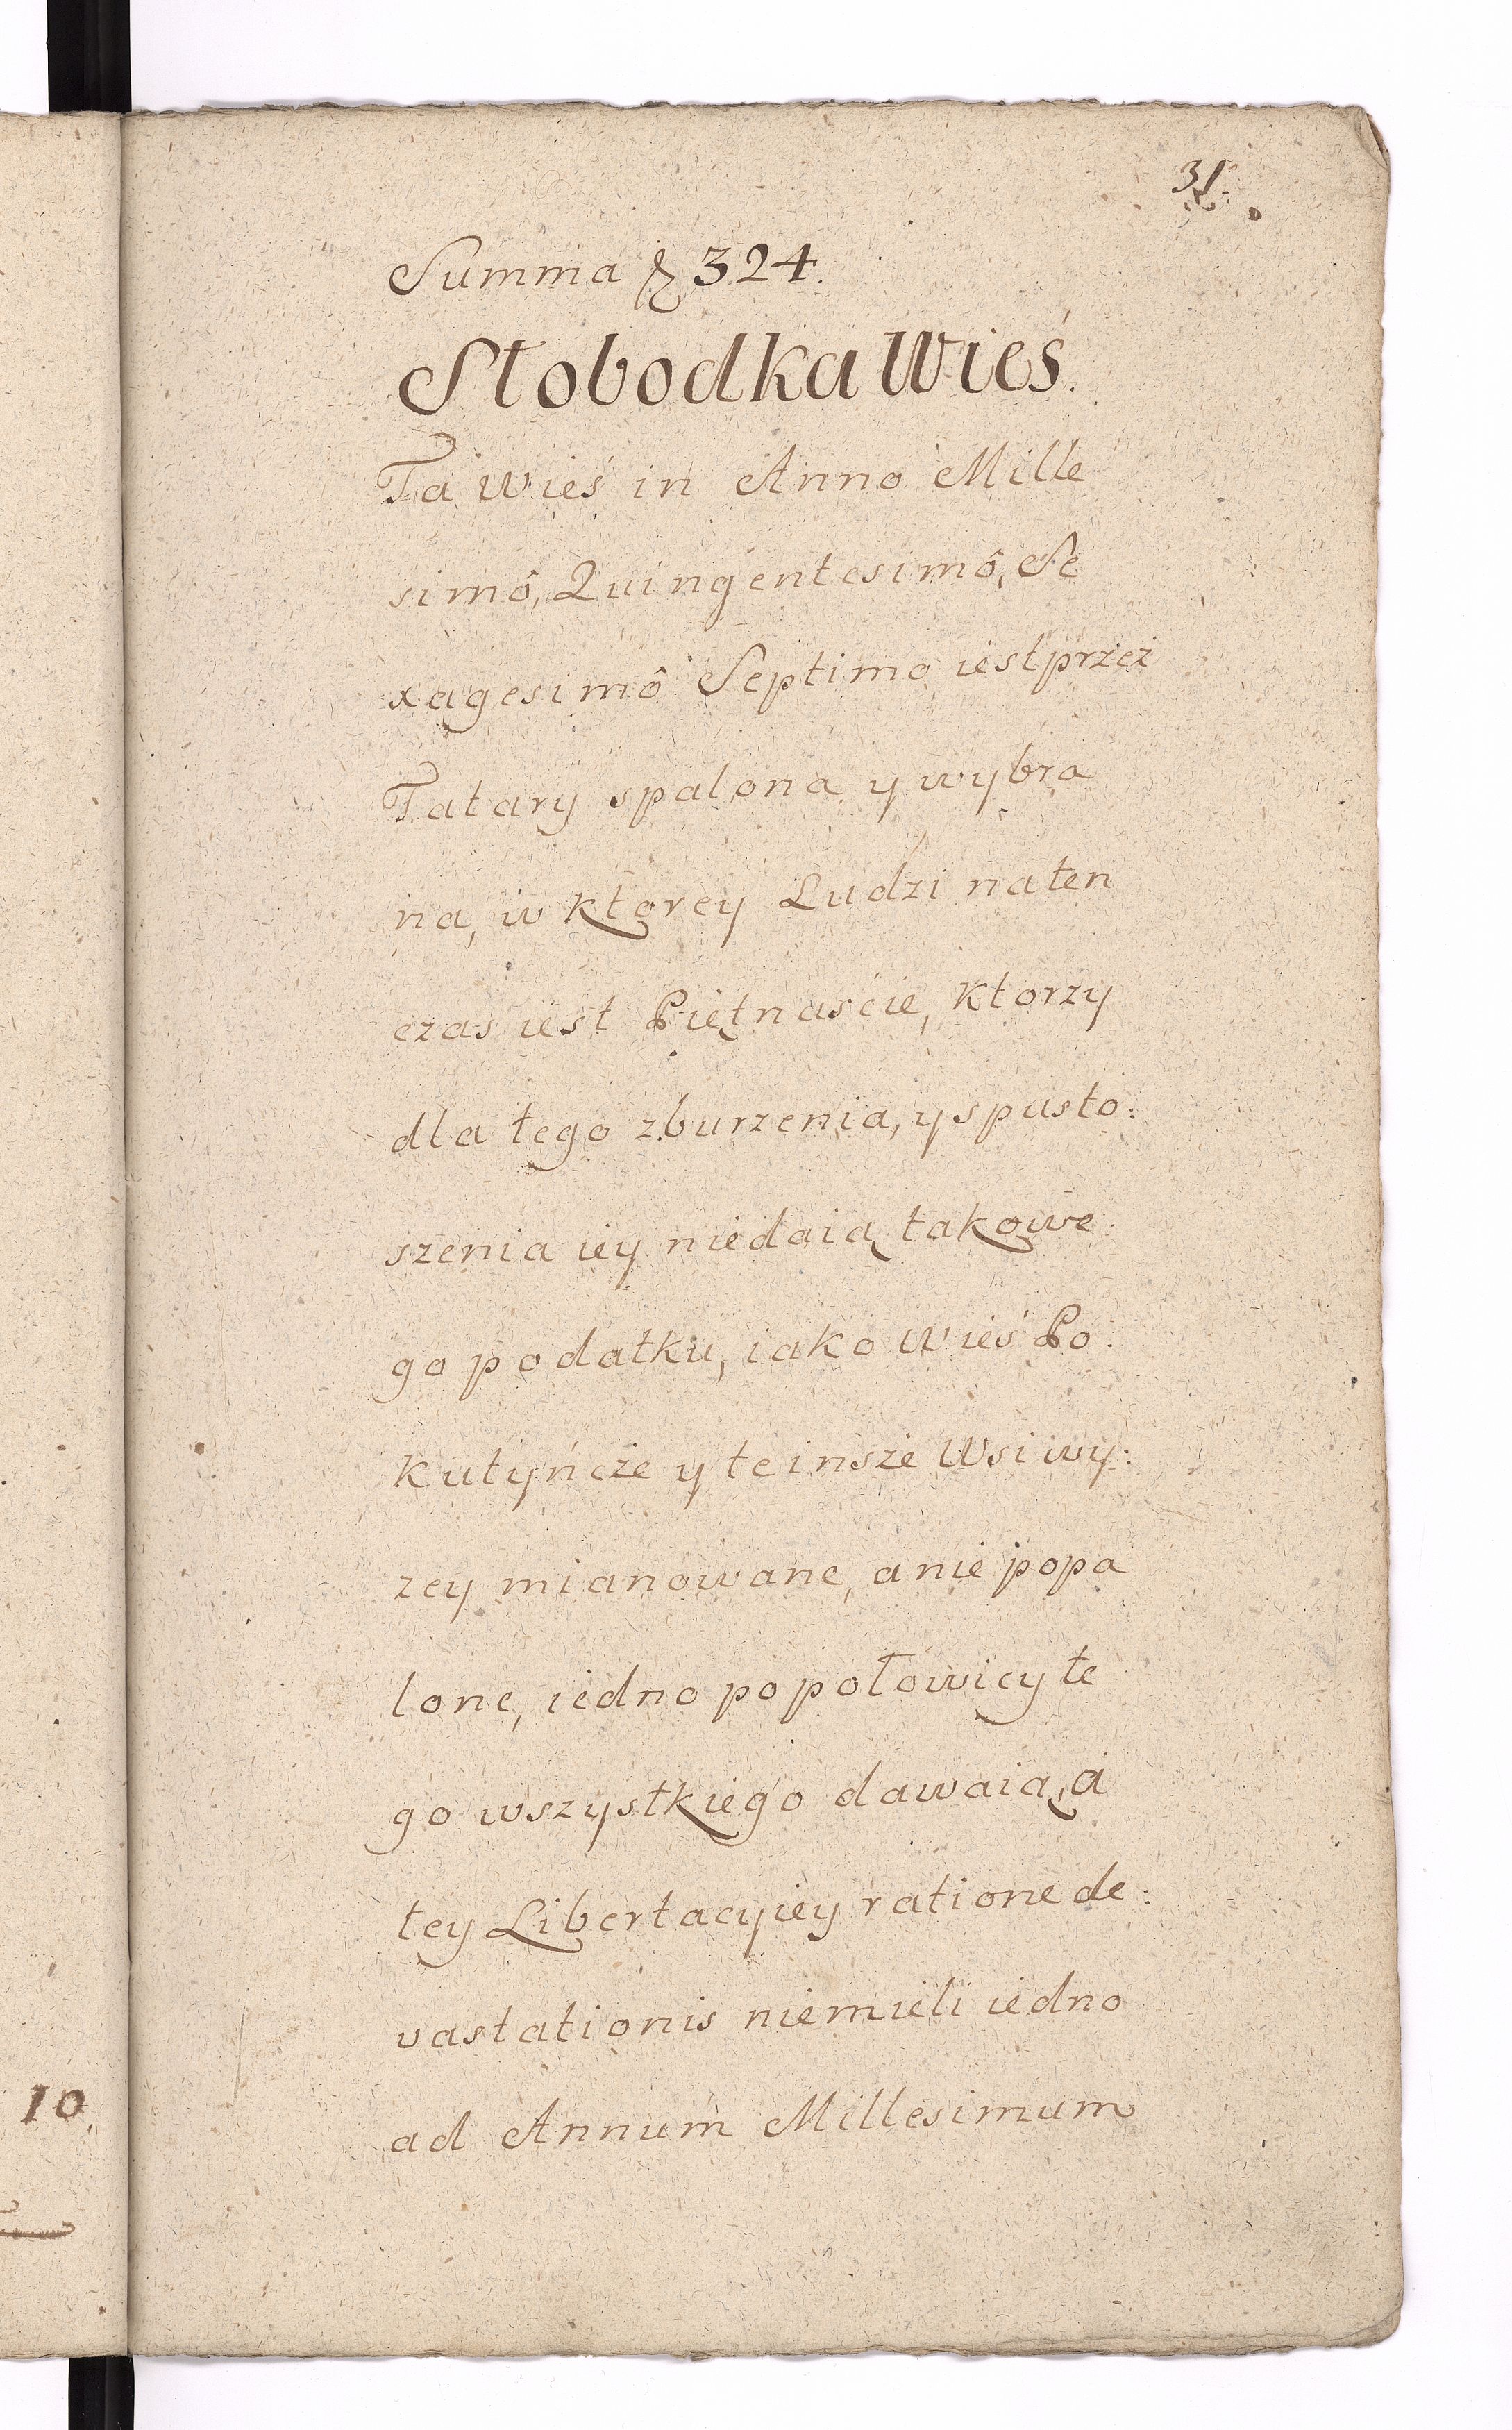 31.
Summa fl 324.
Słobodka Wieś.
Ta wieś in Anno Mille
simô, Quingentesimô, Se
xagesimô Septimo iest przez
Tatary spalona y wybra
na, w ktorey Ludzi naten
czas iest Piętnascie, ktorzy
dla tego zburzenia, y spusto:
szenia iey niedaią takowe.
go podatku, iako Wieś Po.
kutyńcze y te insze Wsi wy:
zey mianowane, a nie popa
lone, iedno popołowicy te
go wszystkiego dawaią, a
tey Libertacyiey ratione de:
vastationis niemieli iedno
ad Annum Millesimum
10